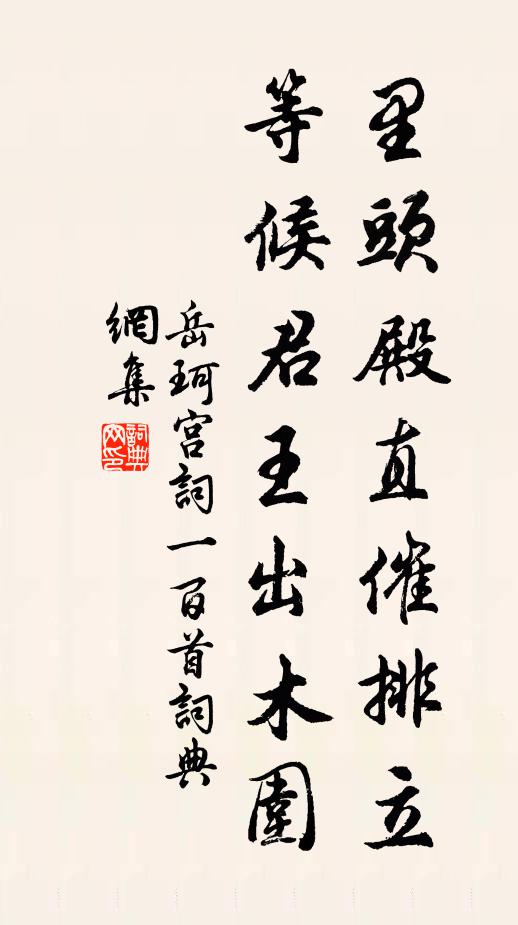 里頭殿直催排立
等候君王出木圍
岳珂宮詞一百首詞典
網集
詞典网印